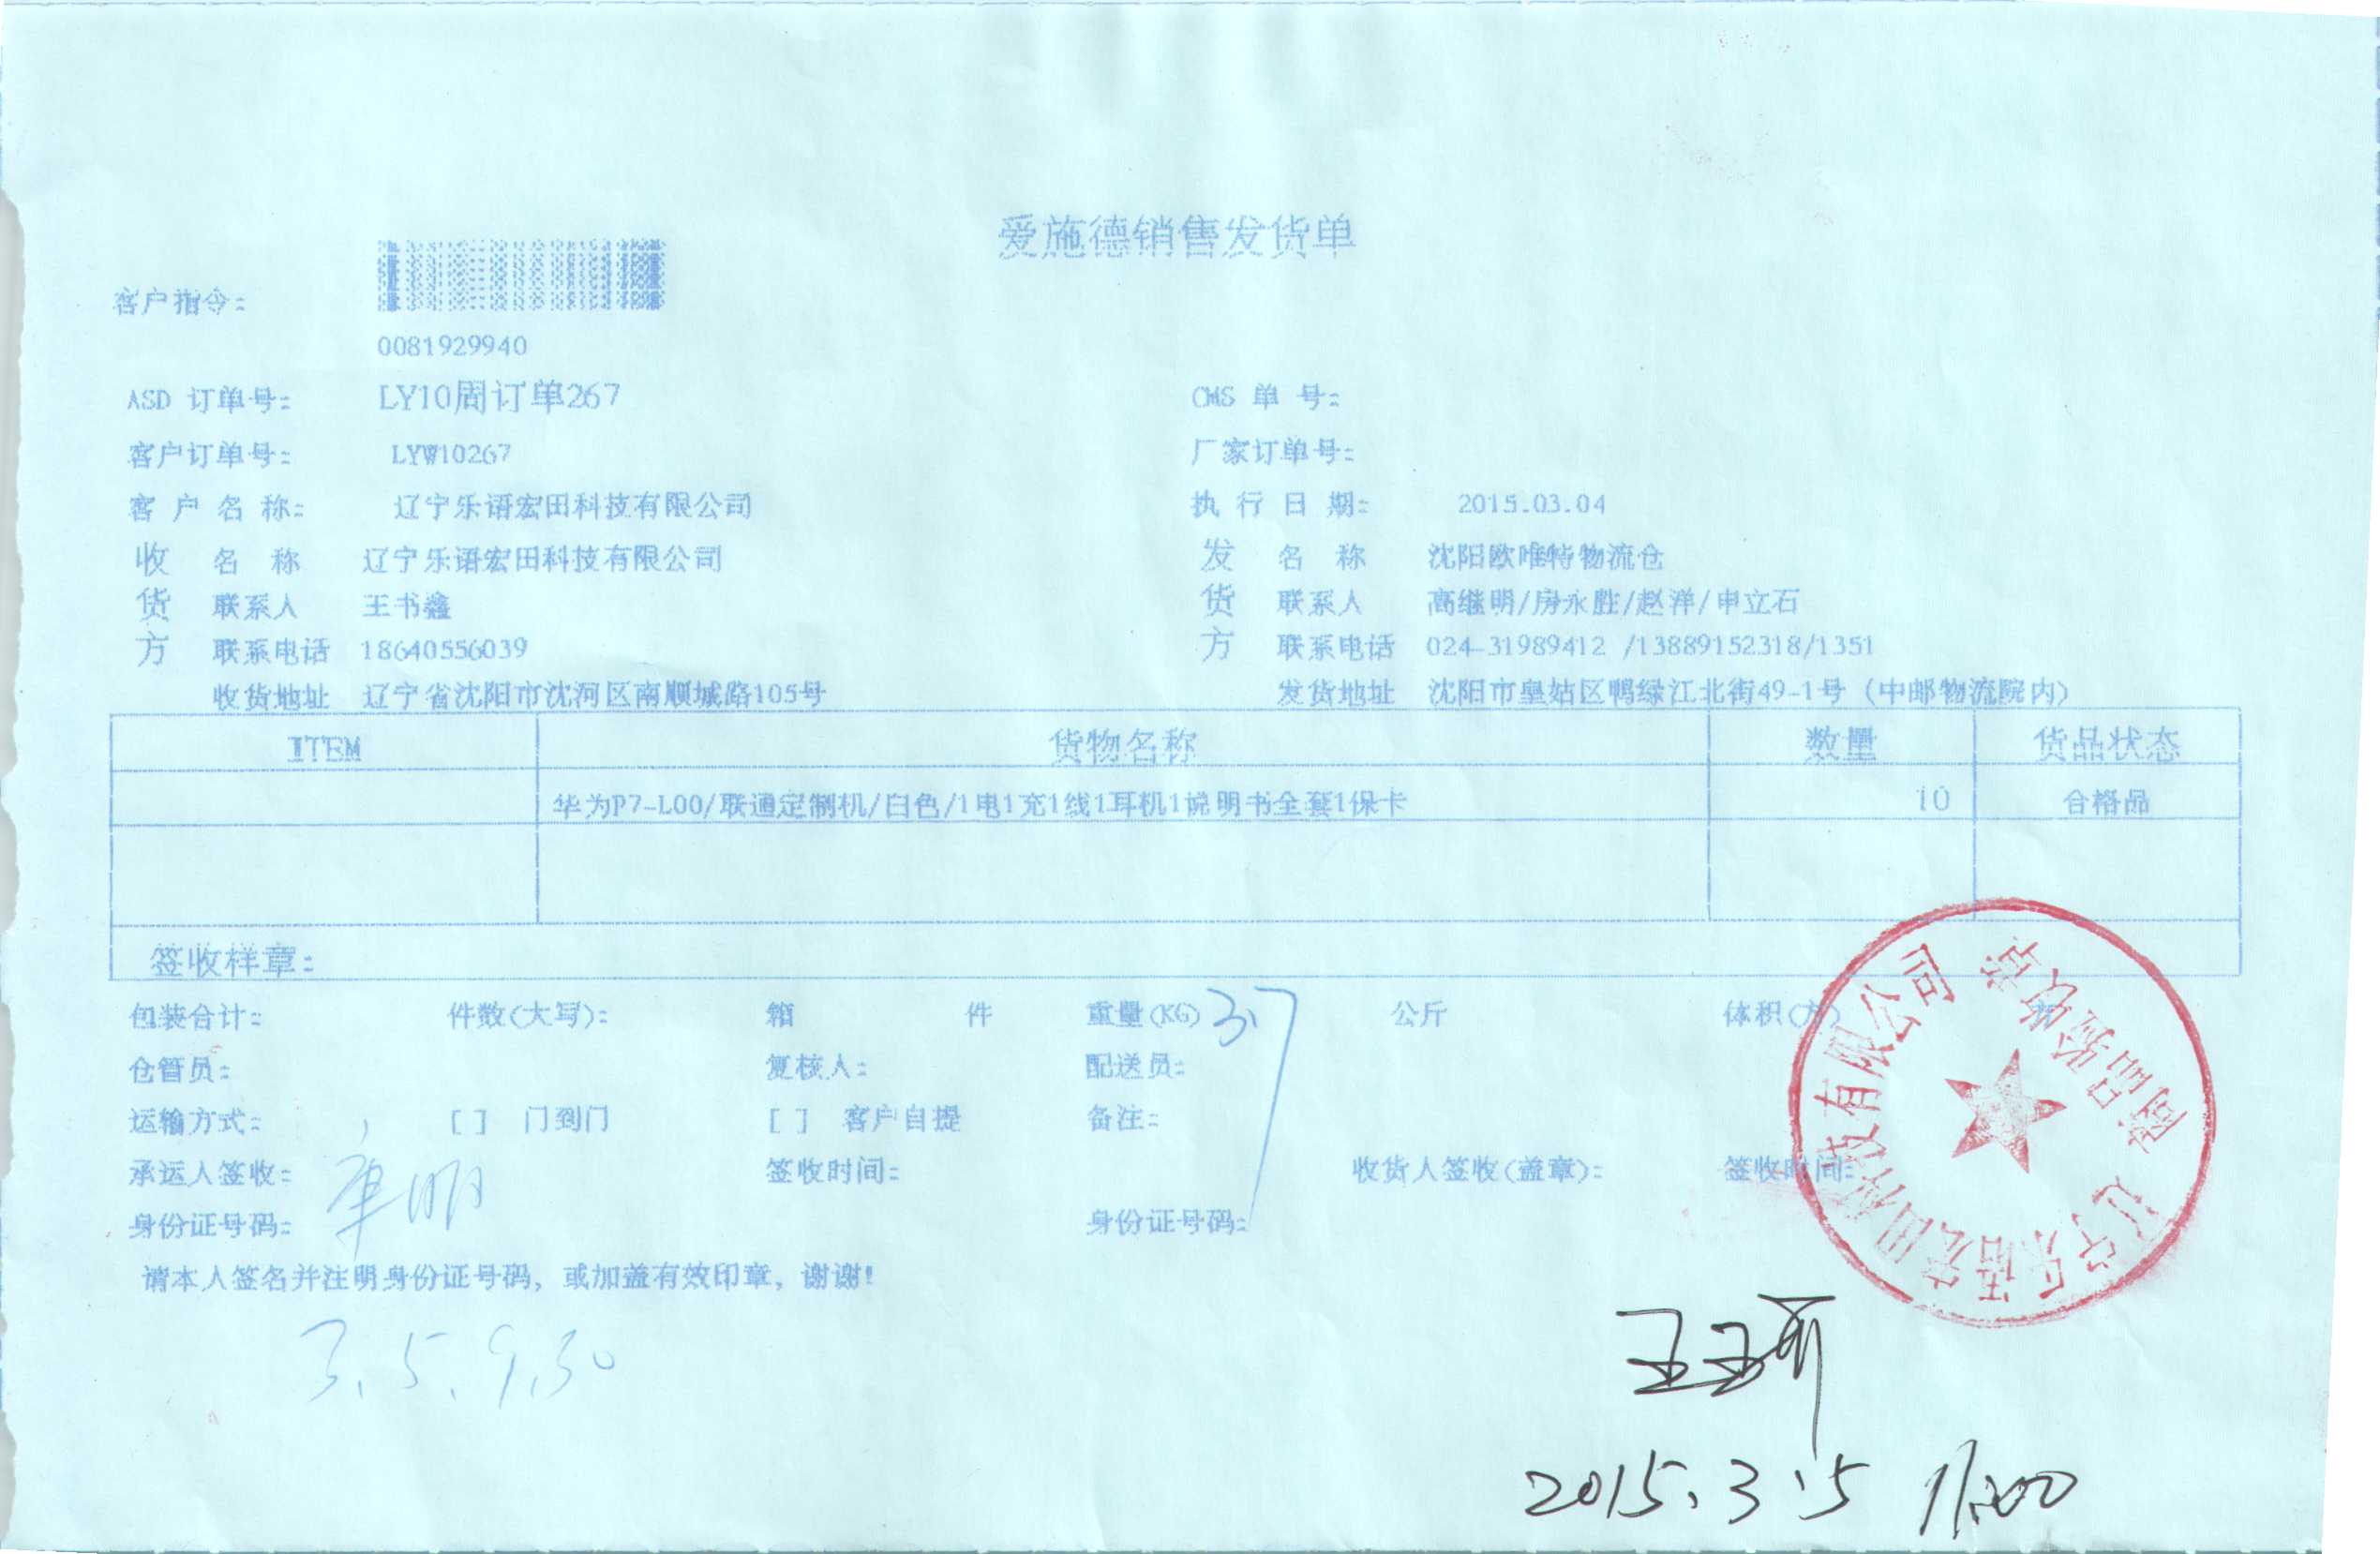 爱施德销售发货单
客户指令:
0081929940
ASD 订单号: LY10周订单267 CMS 单 号:
客户订单号: LYW10267 厂家订单号:
客 户 名 称: 辽宁乐语宏田科技有限公司 执 行 日 期: 2015.03.04
收 名 称 辽宁乐语宏田科技有限公司 发 名 称 沈阳欧唯特物流仓
货 联系人 王书鑫 货 联系人 高继明/房永胜/赵洋/申立石
方 联系电话 18640556039 方 联系电话 024-31989412 /13889152318/1351
收货地址 辽宁省沈阳市沈河区南顺城路105号 发货地址 沈阳市皇姑区鸭绿江北街49-1号 (中邮物流院内)
ITEM 货物名称 数量 货品状态
华为P7-L00/联通定制机/白色/1电1充1线1耳机1说明书全套1保卡 10 合格品
签收样章:
包装合计: 件数(大写): 箱 件 重量(KG) 3.7 公斤 体积(方)
仓管员: 复核人: 配送员:
运输方式: [ ] 门到门 [ ] 客户自提 备注:
承运人签收: 签收时间: 收货人签收(盖章): 签收时间:
身份证号码: 身份证号码:
请本人签名并注明身份证号码, 或加盖有效印章, 谢谢!
辽宁乐语宏田科技有限公司 商品验收章
3.5.9.30
2015.3.5 11:00